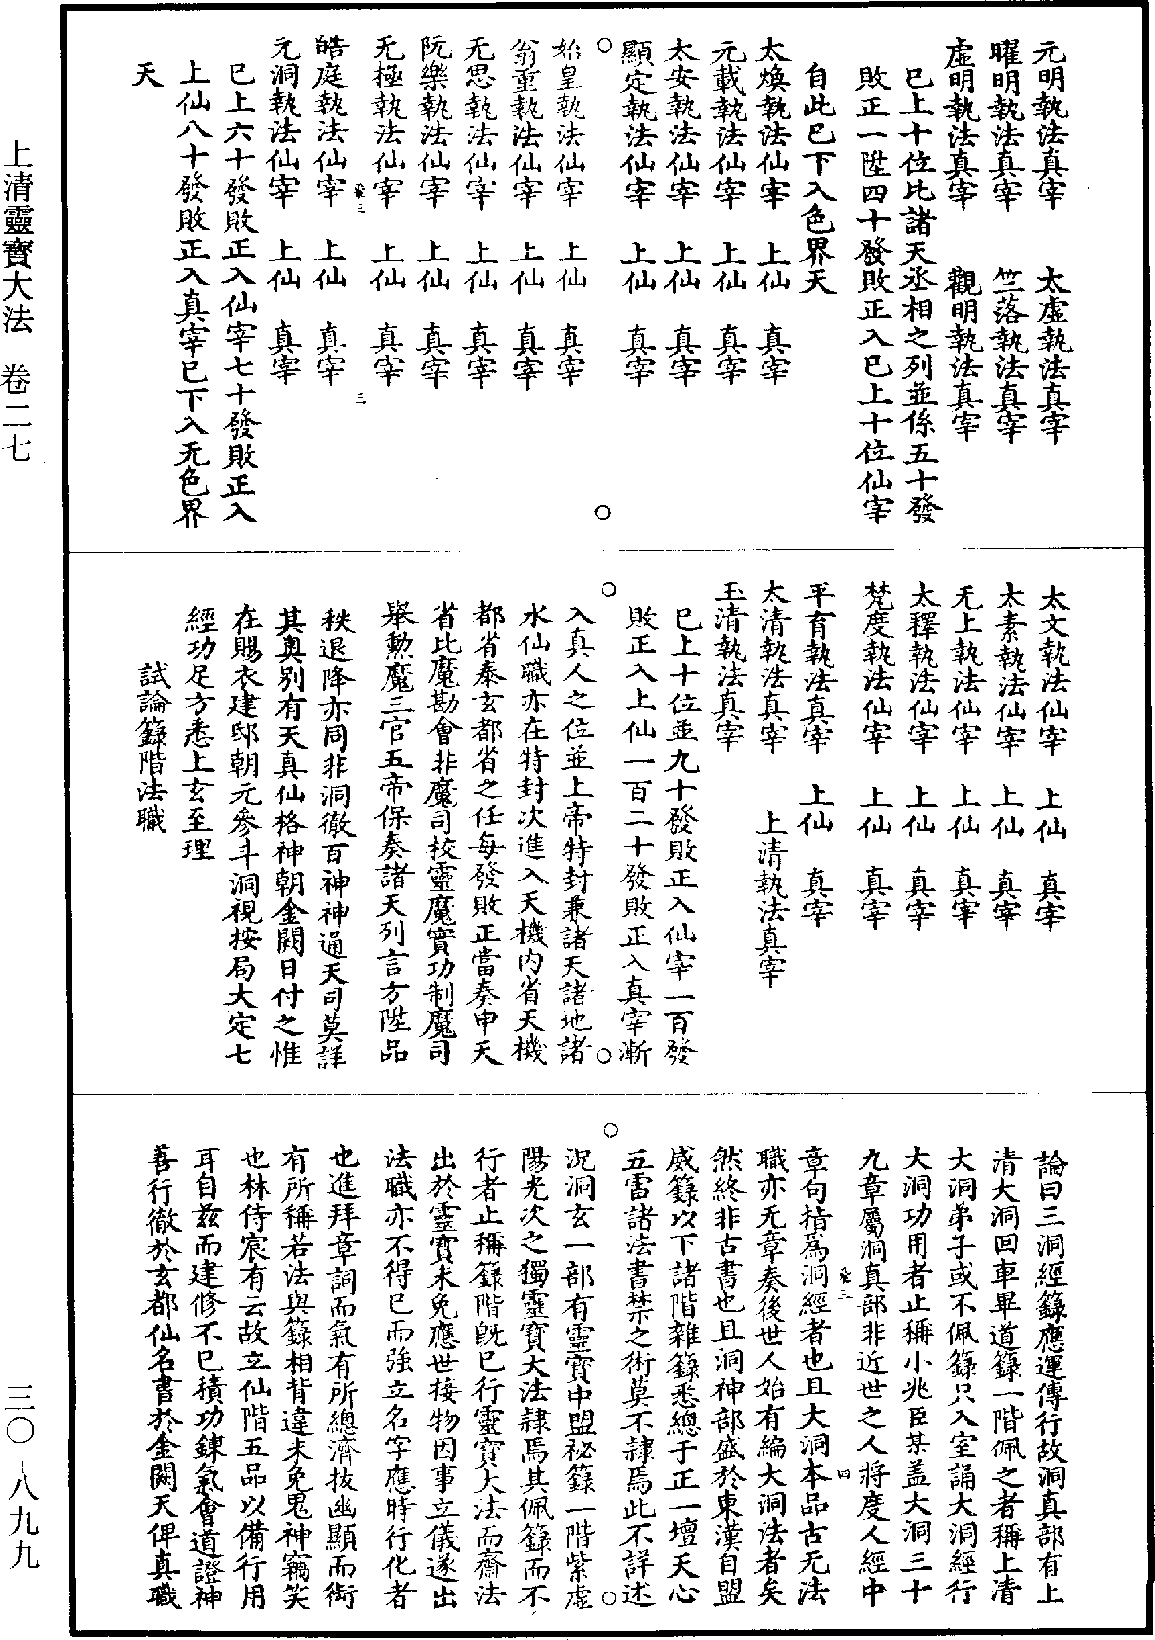 元明執法真宰　太虛執法真宰
曜明執法真宰　竺落執法真宰
虛明執法真宰　觀明執法真宰
巳上十位比諸天丞相之列並係五十發
敗正一陞四十發敗正入巳上十位仙宰
自此巳下入色界天
太煥執法仙宰　上仙　真宰
元載執法仙宰　上仙　真宰
太安執法仙宰　上仙　真宰
顯定執法仙宰　上仙　真宰
始皇執法仙宰　上仙　真宰
翁重執法仙宰　上仙　真宰
无思執法仙宰　上仙　真宰
阮樂執法仙宰　上仙　真宰
无極執法仙宰　上仙　真宰
皓庭執法仙宰　上仙　真宰
元洞執法仙宰　上仙　真宰
巳上六十發敗正入仙宰七十發敗正入
上仙八十發敗正入真宰巳下入无色界
天
太文執法仙宰　上仙　真宰
太素執法仙宰　上仙　真宰
无上執法仙宰　上仙　真宰
太釋執法仙宰　上仙　真宰
梵度執法仙宰　上仙　真宰
平育執法真宰　上仙　真宰
太清執法真宰　上清執法真宰
玉清執法真宰
巳上十位並九十發敗正入仙宰一百發
敗正入上仙一百二十發敗正入真宰漸
入真人之位並上帝特封兼諸天諸地諸
水仙職亦在特封次進入天機內省天機
都省泰玄都省之任每發敗正當奏申天
省比魔勘會非魔司校靈魔實功制魔司
舉勲魔三官五帝保奏諸天列言方陞品
秩退降亦同非洞徹百神神通天司莫詳
其奧別有天真仙格神朝金闕日付之惟
在賜衣建邸朝元參斗洞視按局大定七
經功足方悉上玄至理
試論籙階法職
論曰三洞經籙應運傳行故洞真部有上
清大洞回車畢道籙一階佩之者稱上清
大洞弟子或不佩籙只入室誦大洞經行
大洞功用者止稱小兆臣某盖大洞三十
九章屬洞真部非近世之人將度人經中
章句指爲洞經者也且大洞本品古无法
職亦无章奏後世人始有編大洞法者矣
然終非古書也且洞神部盛於東漢自盟
威籙以下諸階雜籙悉總于正一壇天心
五雷諸法書禁之術莫不隷焉此不詳述
況洞玄一部有靈寶中盟祕籙一階紫虛
陽光次之獨靈寶大法隷焉其佩籙而不
行者止稱籙階既巳行靈寶大法而齋法
出於靈寶未免應世接物因事立儀遂出
法職亦不得巳而強立名字應時行化者
也進拜章詞而氣有所總濟拔幽顯而銜
有所稱若法與籙相背違未免鬼神竊笑
也林侍宸有云故立仙階五品以備行用
耳自兹而建修不巳積功鍊氣會道證神
善行徹於玄都仙名書於金闕天俾真職
上清靈寶大法　卷二七
三〇-八九九